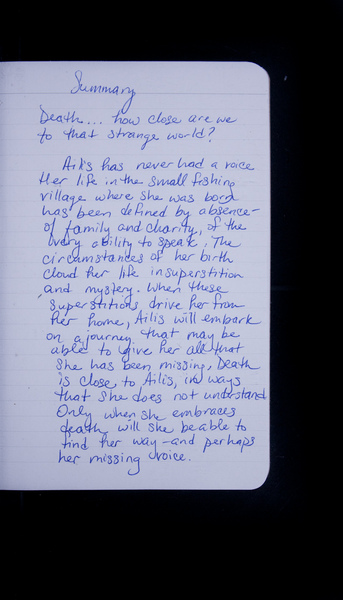 Summary
Death... how close are we
to that strange world?
Ailis has never had a voice
Her life in the small fishing
village where she was born
has been defined by absence-
of family and charity, of the
very ability to speak. The
circumstances of her birth
cloud her life in superstition
and mystery. When these
superstitions drive her from
her home, Ailis will embark
on a journey that may be
able to give her all that
she has been missing. Death
is close to Ailis, in ways
that she does not understand
Only when she embraces
death will she be able to
find her way - and perhaps
her missing voice.